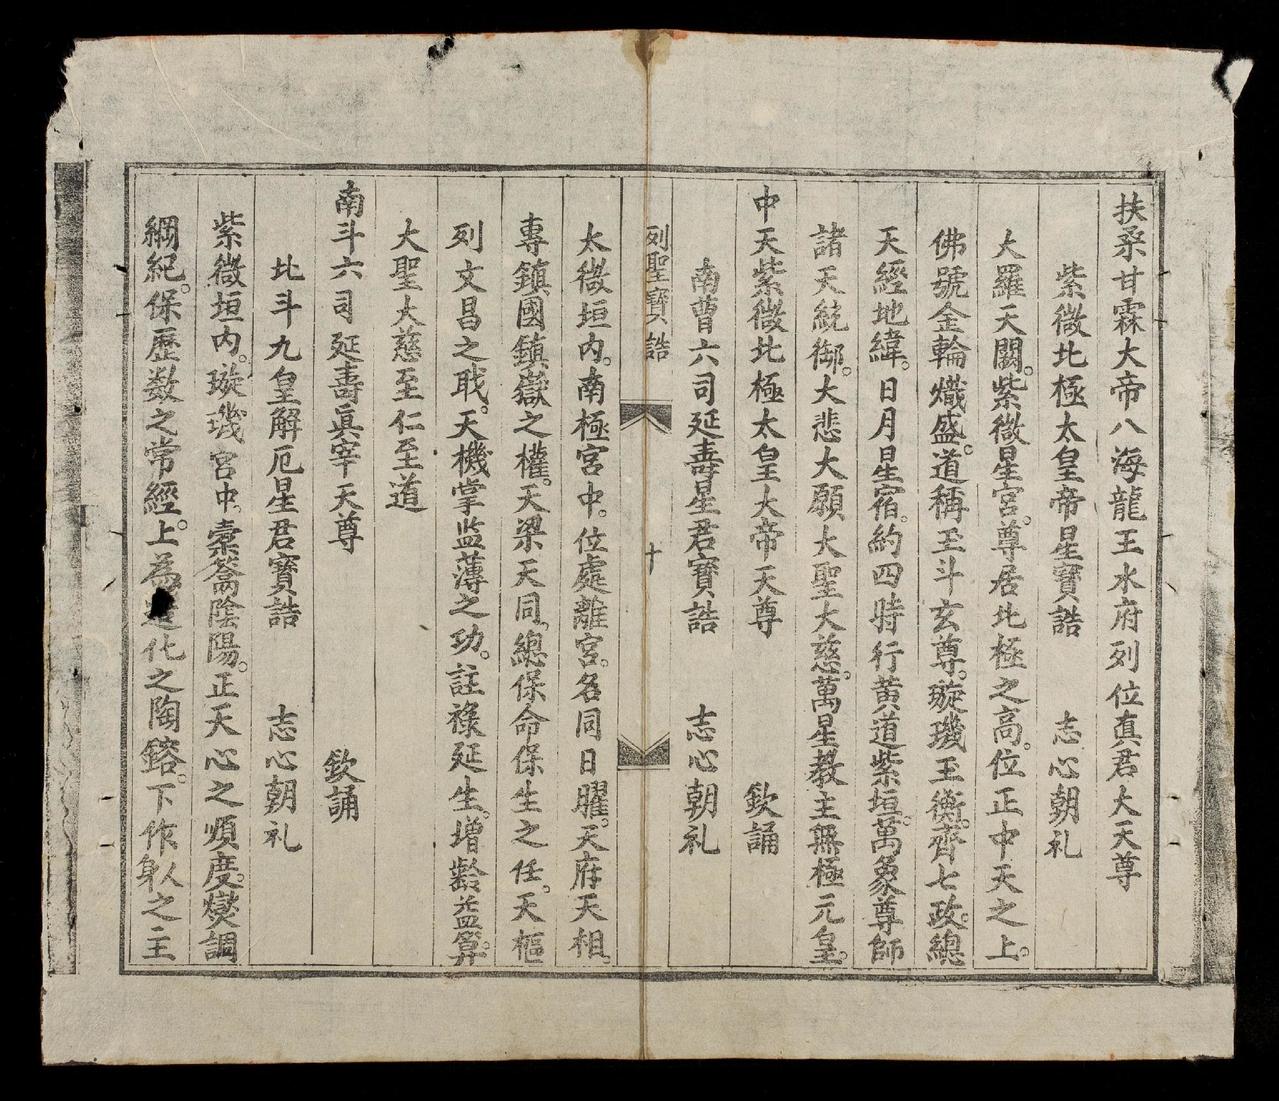 扶桑甘霖大帝八海龍王水府列位真君大天尊
紫微北極太皇帝星寶誥 志心朝礼
大羅天闕。紫微星宮。尊居北極之高。位正中天之上。
佛號金輪熾盛。道稱玉斗玄尊。璇璣玉衡。齊七政。總
天經地緯。日月星宿。約四時行黄道紫垣。萬象尊師
諸天統御。大悲大願大聖大慈。萬星教主無極元皇。
中天紫微北極太皇大帝天尊 欽誦
南曹六司延壽星君寶誥 志心朝礼
列聖寶誥 十
太微垣内。南極宮中。位處離宮。名同日曜。天府天相。
專鎮國鎮嶽之權。天梁天同。總保命保生之任。天樞
列文昌之戢。天機掌监薄之功。註祿延生。增齡益算。
大聖大慈至仁至道
南斗六司延壽眞宰天尊 欽誦
北斗九皇解厄星君寶誥 志心朝礼
紫微垣内。璇璣宮中。橐籥陰陽。正天心之煩度。燮調
綱紀。保歷数之常經。上為造化之陶鎔。下作人身之主